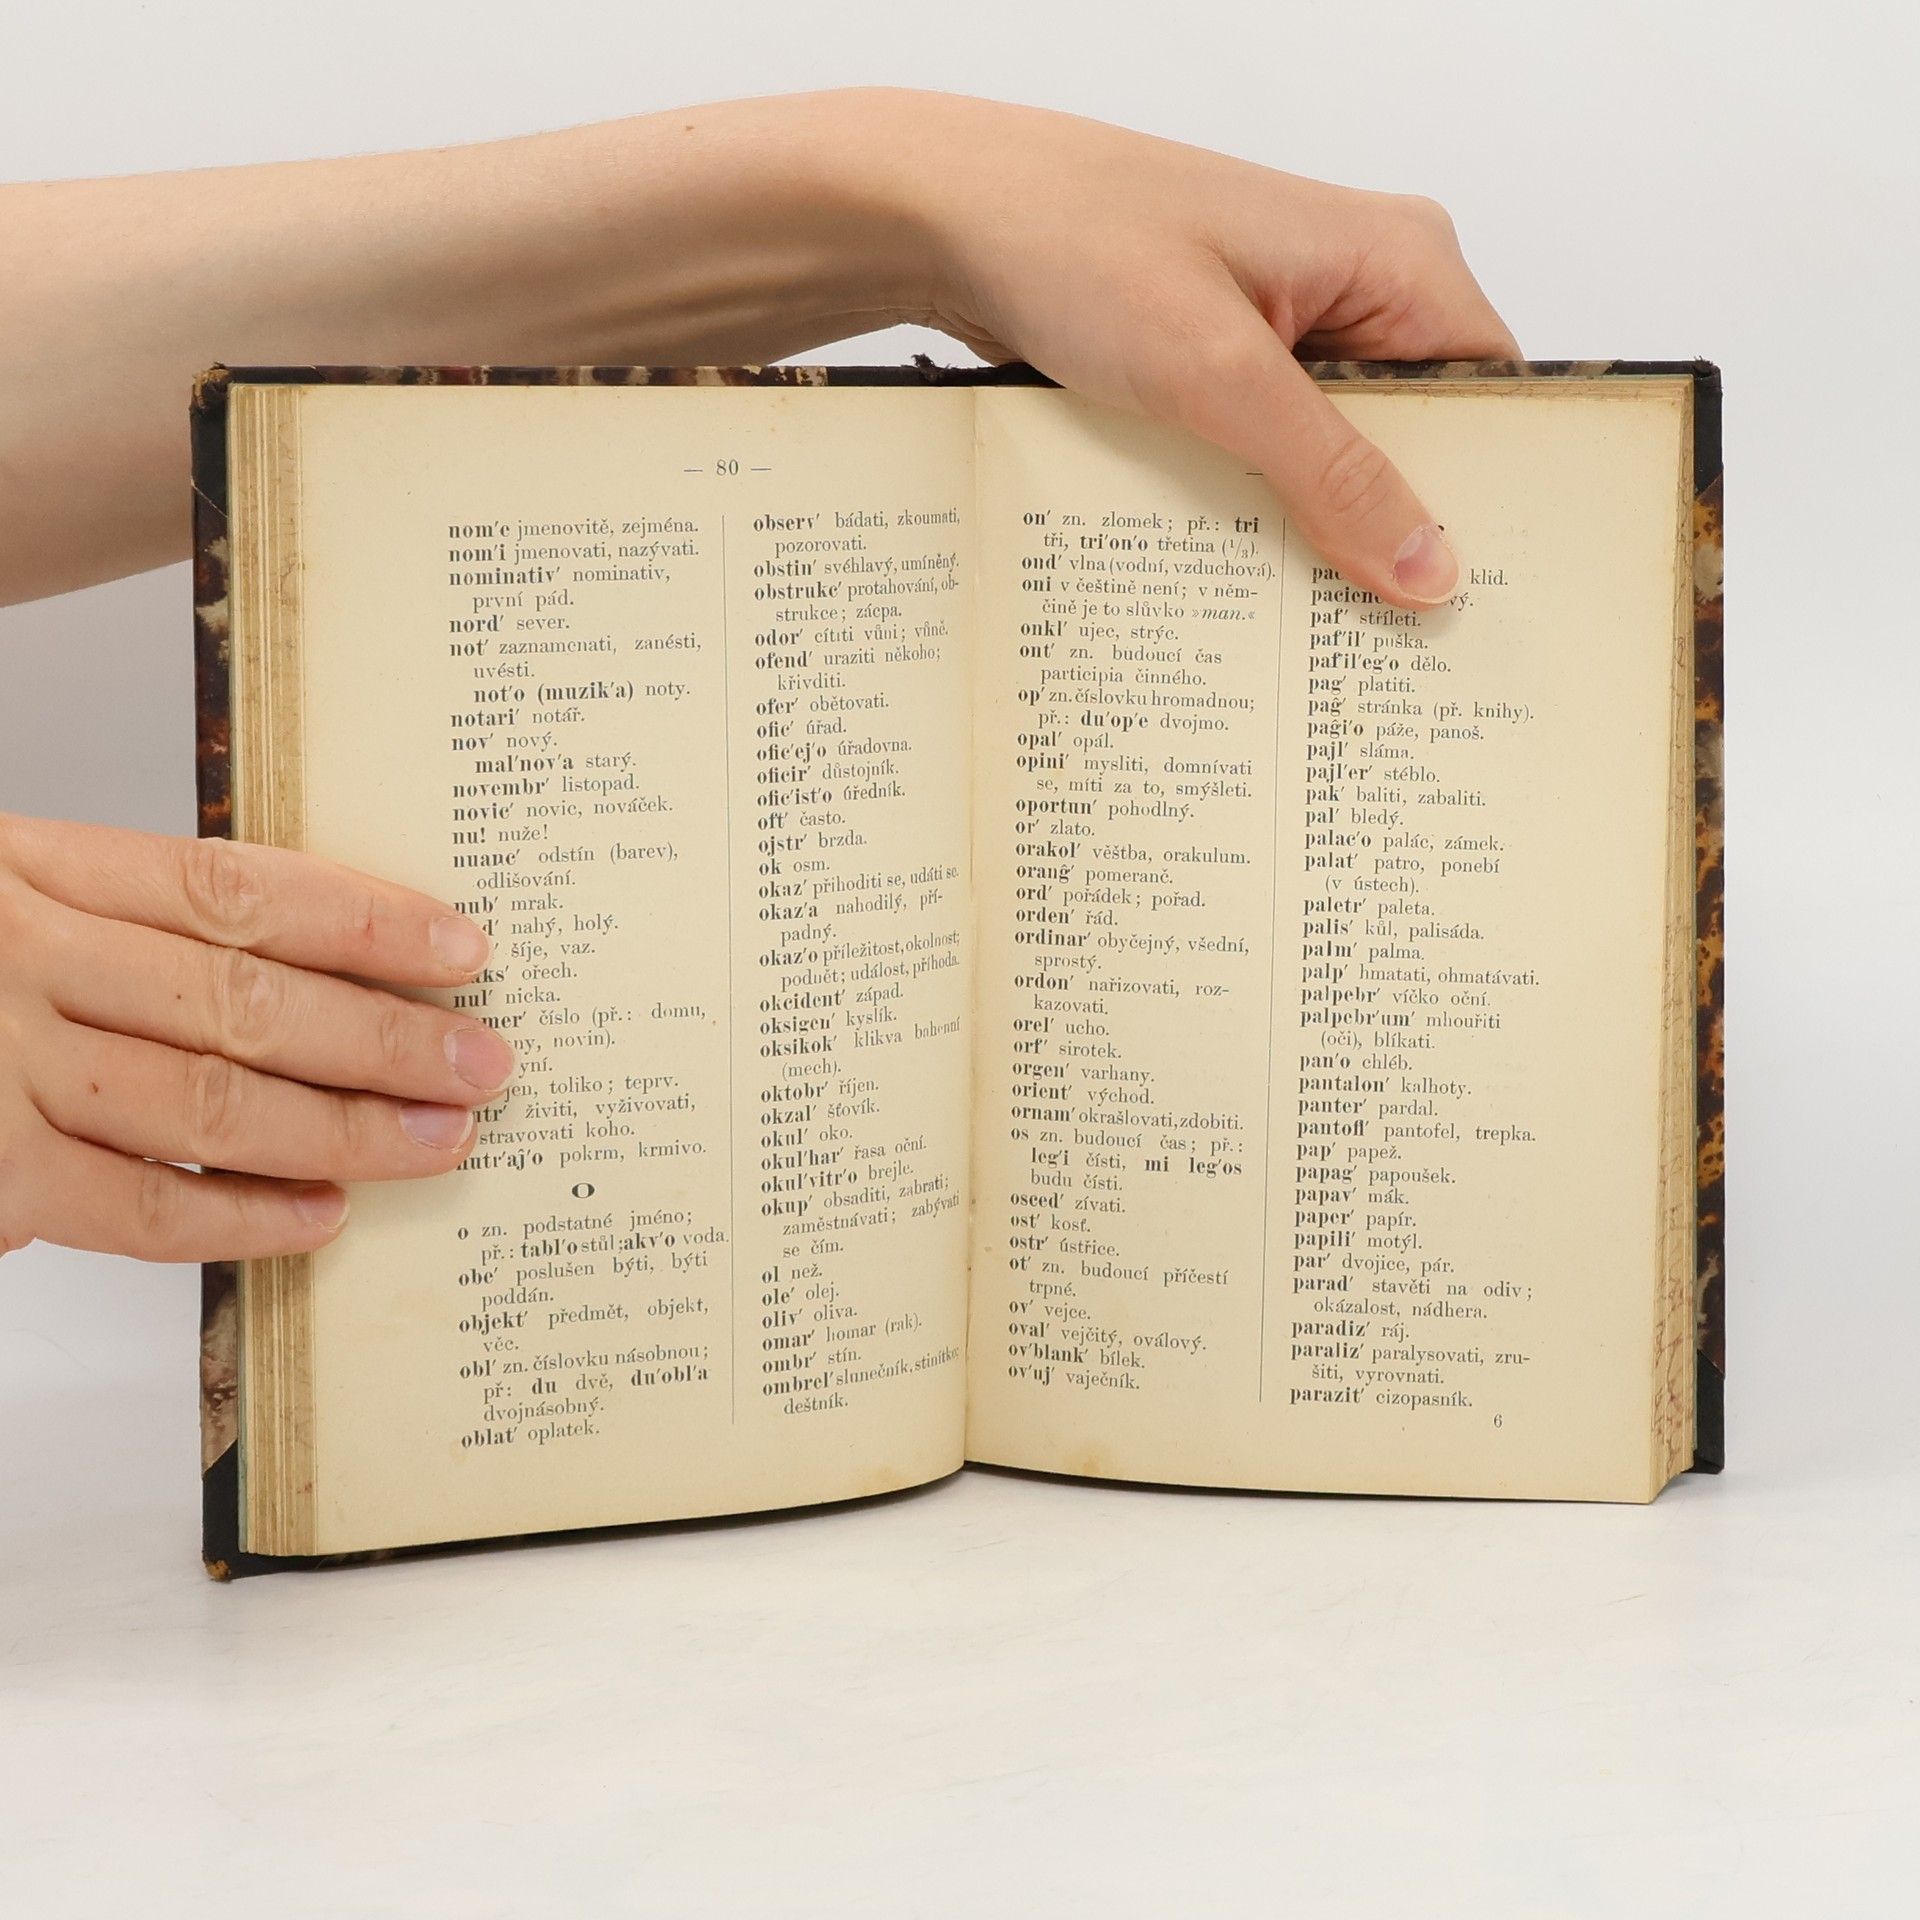 — 80 —
nom'e jmenovitě, zejména.
nom'i jmenovati, nazývati.
nominativ' nominativ,
první pád.
nord' sever.
not' zaznamenati, zanésti,
uvésti.
not'o (muzik'a) noty.
notari' notář.
nov' nový.
mal'nov'a starý.
novembr' listopad.
novic' novic, nováček.
nu! nuže!
nuanc' odstín (barev),
odlišování.
nub' mrak.
nahý, holý.
šíje, vaz.
ořech.
nul' nicka.
číslo (př.: domu,
novin).
toliko; teprv.
živiti, vyživovati,
stravovati koho.
nutr'aĵ'o pokrm, krmivo.
O
o zn. podstatné jméno;
př.: tabl'o stůl; akv'o voda.
obe' poslušen býti, býti
poddán.
objekt' předmět, objekt,
věc.
obl' zn. číslovku násobnou;
př: du dvě, du'obl'a
dvojnásobný.
oblat' oplatek.
observ' bádati, zkoumati,
pozorovati.
obstin' svéhlavý, umíněný.
obstrukc' protahování, ob-
strukce; zácpa.
odor' cítiti vůni; vůně.
ofend' uraziti někoho;
křivditi.
ofer' obětovati.
ofic' úřad.
ofic'ej'o úřadovna.
oficir' důstojník.
ofic'ist'o úředník.
oft' často.
ojstr' brzda.
ok osm.
okaz' přihoditi se, udáti se.
okaz'a nahodilý, pří-
padný.
okaz'o příležitost, okolnost;
podnět; událost, příhoda.
okcident' západ.
oksigen' kyslík.
oksikok' klikva bahenní
(mech).
oktobr' říjen.
okzal' šťovík.
okul' oko.
okul'har' řasa oční.
okul'vitr'o brejle.
okup' obsaditi, zabrati;
zaměstnávati; zabývati
se čím.
ol než.
ole' olej.
oliv' oliva.
omar' homar (rak).
ombr' stín.
ombrel' slunečník, stinítko;
deštník.
on' zn. zlomek; př.: tri
tři, tri'on'o třetina (1/3).
ond' vlna (vodní, vzduchová).
oni v češtině není; v něm-
čině je to slůvko »man.«
onkl' ujec, strýc.
ont' zn. budoucí čas
participia činného.
op' zn. číslovku hromadnou;
př.: du'op'e dvojmo.
opal' opál.
opini' mysliti, domnívati
se, míti za to, smýšleti.
oportun' pohodlný.
or' zlato.
orakol' věštba, orakulum.
oranĝ' pomeranč.
ord' pořádek; pořad.
orden' řád.
ordinar' obyčejný, všední,
sprostý.
ordon' nařizovati, roz-
kazovati.
orel' ucho.
orf' sirotek.
orgen' varhany.
orient' východ.
ornam' okrašlovati, zdobiti.
os zn. budoucí čas; př.:
leg'i čísti, mi leg'os
budu čísti.
osced' zívati.
ost' kosť.
ostr' ústřice.
ot' zn. budoucí příčestí
trpné.
ov' vejce.
oval' vejčitý, oválový.
ov'blank' bílek.
ov'uj' vaječník.
klid.
paf' stříleti.
paf'il' puška.
paf'il'eg'o dělo.
pag' platiti.
paĝ' stránka (př. knihy).
paĝi'o páže, panoš.
pajl' sláma.
pajl'er' stéblo.
pak' baliti, zabaliti.
pal' bledý.
palac'o palác, zámek.
palat' patro, ponebí
(v ústech).
paletr' paleta.
palis' kůl, palisáda.
palm' palma.
palp' hmatati, ohmatávati.
palpebr' víčko oční.
palpebr'um' mhouřiti
(oči), blíkati.
pan'o chléb.
pantalon' kalhoty.
panter' pardal.
pantofl' pantofel, trepka.
pap' papež.
papag' papoušek.
papav' mák.
paper' papír.
papili' motýl.
par' dvojice, pár.
parad' stavěti na odiv;
okázalost, nádhera.
paradiz' ráj.
paraliz' paralysovati, zru-
šiti, vyrovnati.
parazit' cizopasník.
6